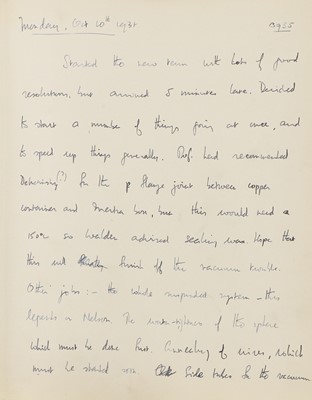 Monday, Oct 10th 1932
Started the new term with lots of good
resolutions, but arrived 5 minutes late. Decided
to start a number of things going at once, and
to speed up things generally. Prof. had recommended
(?) for the flange joint between copper
container and inertia box, but this would need a
so Walden advised sealing wax. Hope that
this will finish off the vacuum trouble.
Other jobs :- the whole suspended system - this
depends on Nelson. The water-tightness of the sphere
which must be done first. Annealing of wires, which
must be started soon. Side tubes for the vacuum